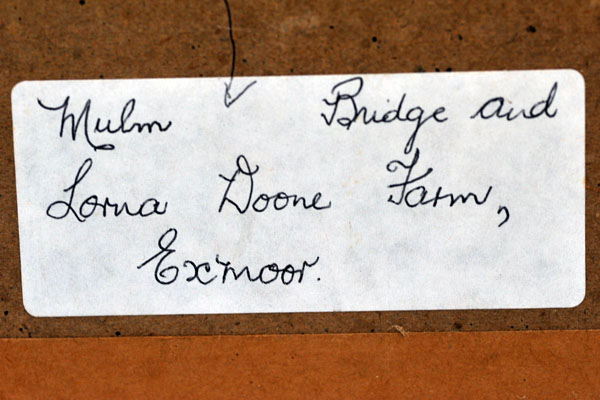 Mulm Bridge and
Lorna Doone Farm,
Exmoor.